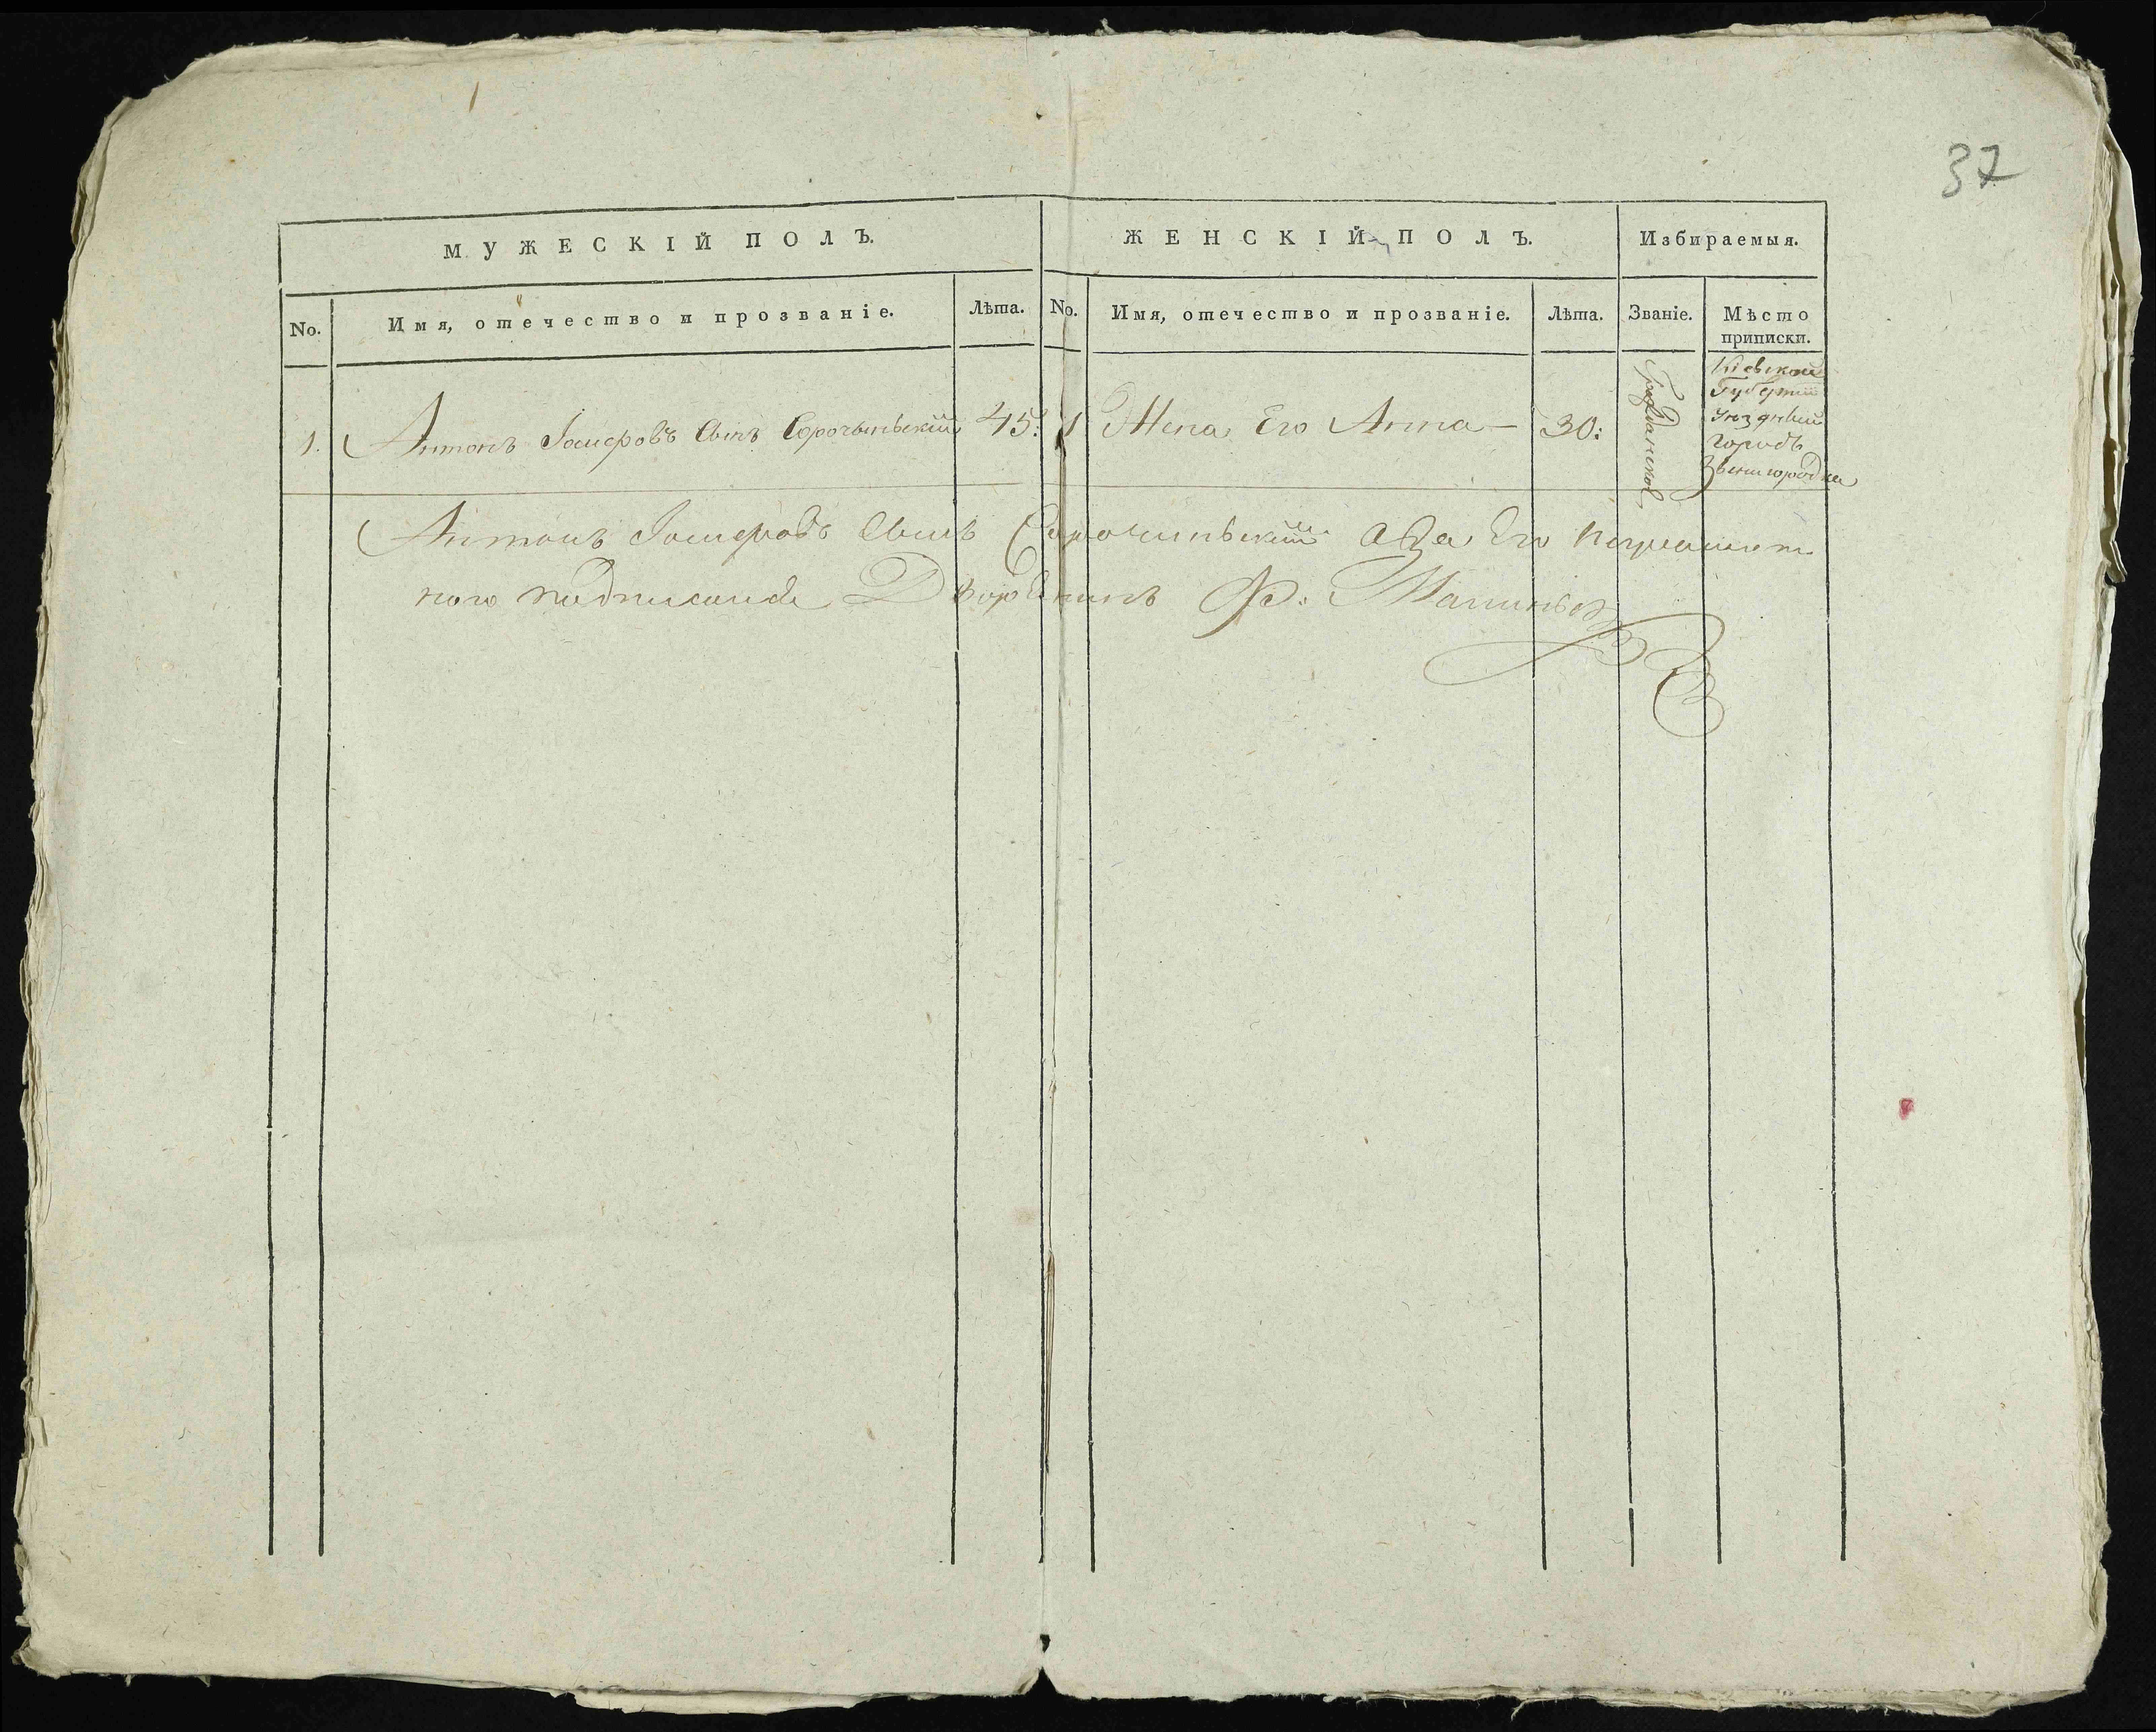 37
МУЖЕСКІЙ ПОЛЪ.
ЖЕНСКІЙ ПОЛЪ.
Избираемыя.
No.
Имя, отечество и прозваніе.
Лѣта.
No.
Имя, отечество и прозваніе.
Лѣта.
Званіе.
Мѣсто
приписки.
1.
Антонъ сынъ Сорочыньскій
45:
1
Жена Его Анна
30:
Гражданское
Кіевской
Губерніи
Уездный
городъ
Звенигородка
Антонъ сынъ Сорочиньскій а За Его неграмот
ного подписался Дворянинъ Ф: